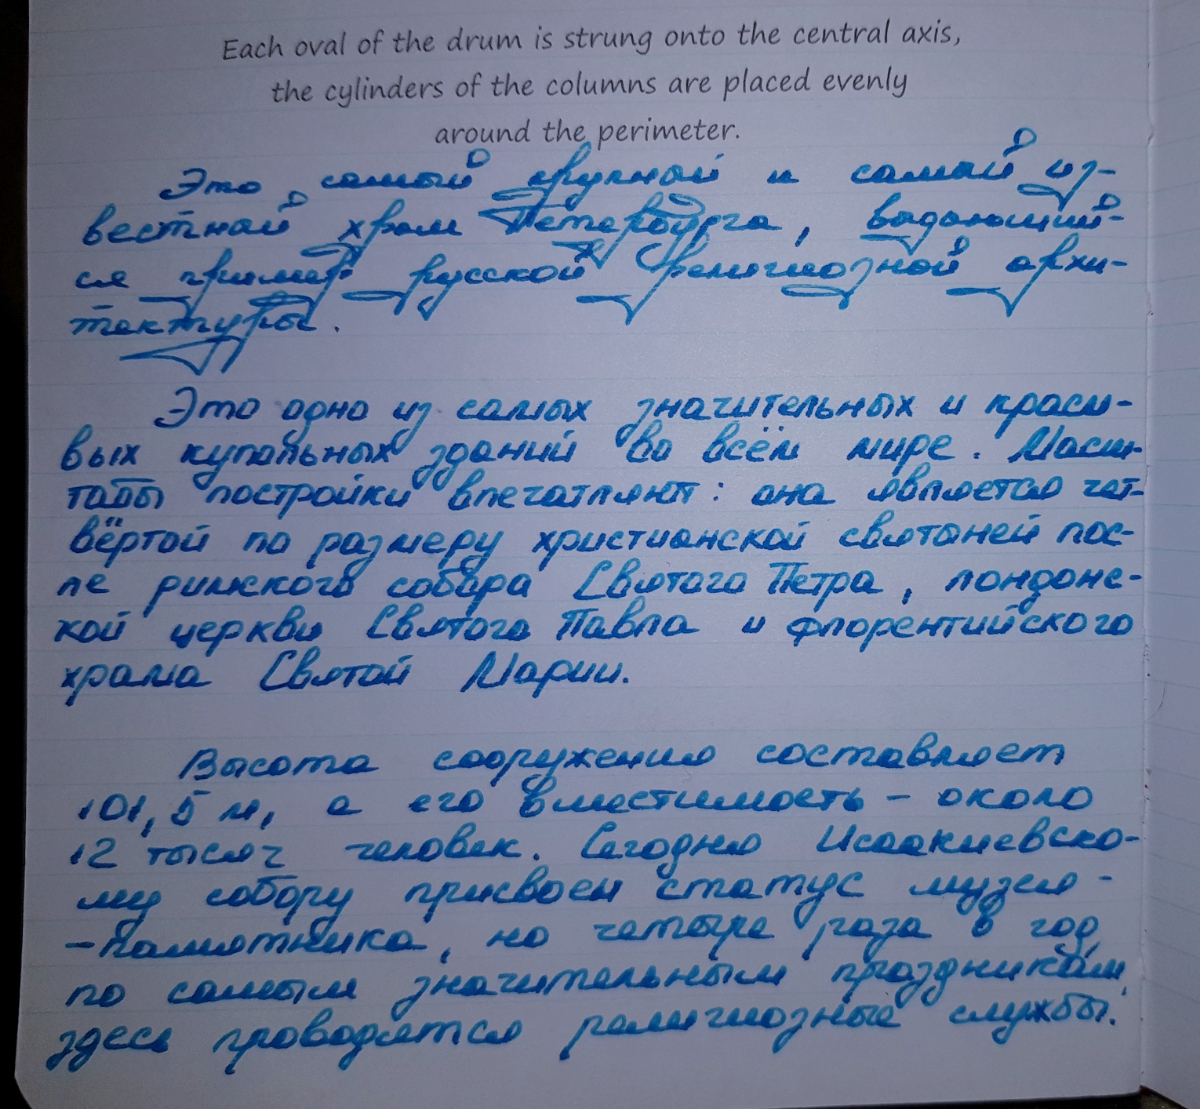 Each oval of the drum is strung onto the central axis,
the cylinders of the columns are placed evenly
around the perimeter.
Это самый крупный и самый из-
вестный храм Петербурга, выдающий-
ся пример русской религиозной архи-
тектуры.
Это одно из самых значительных и краси-
вых купольных зданий во всём мире. Масш-
табы постройки впечатляют: она является чет-
вёртой по размеру христианской святыней пос-
ле римского собора Святого Петра, лондонс-
кой церкви Святого Павла и флорентийского
храма Святой Марии.
Высота сооружения составляет
101,5 м, а его вместимость - около
12 тысяч человек. Сегодня Исаакиевско-
му собору присвоен статус музея-
-памятника, но четыре раза в год,
по самым значительным праздникам,
здесь проводятся религиозные службы.